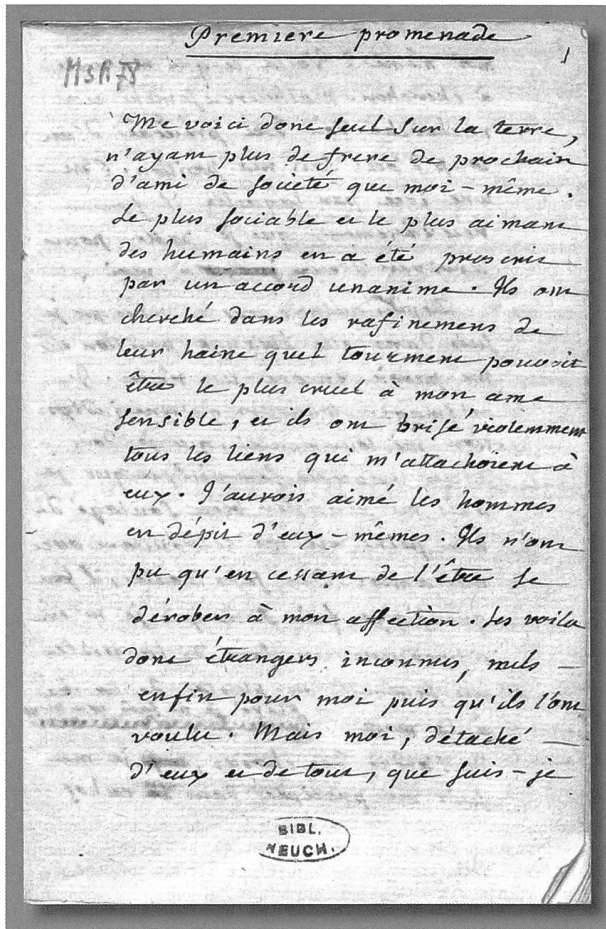 Premiere promenade
1
MsR78
Me voici donc seul sur la terre,
n'ayant plus de frere de prochain
d'ami de societé que moi-même.
Le plus sociable et le plus aimant
des humains en a été proscrit
par un accord unanime. Ils ont
cherché dans les rafinemens de
leur haine quel tourment pouvoit
être le plus cruel à mon ame
sensible, et ils ont brisé violemment
tous les liens qui m'attachoient à
eux. J'aurois aimé les hommes
en dépit d'eux-mêmes. Ils n'ont
pu qu'en cessant de l'être se
dérober à mon affection. Les voila
donc étrangers, inconnus, nuls —
enfin pour moi puis qu'ils l'ont
voulu. Mais moi, détaché —
d'eux et de tout, que suis-je
BIBL.
NEUCH.